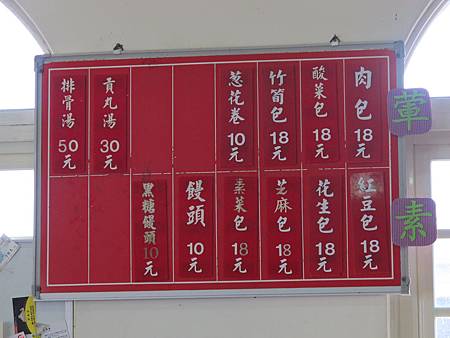 葷
肉包18元
酸菜包18元
竹筍包18元
蔥花卷10元
貢丸湯30元
排骨湯50元
素
紅豆包18元
花生包18元
芝麻包18元
素菜包18元
饅頭10元
黑糖饅頭10元